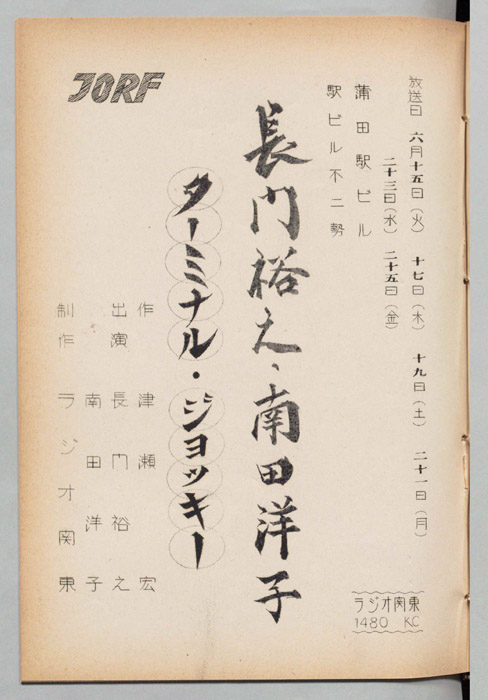 放送日 六月十五日(火) 十七日(木) 十九日(土) 二十一日(月)
二十三日(水) 二十五日(金)
蒲田駅ビル
駅ビル不二勢
長門裕之、南田洋子
ターミナル・ジョッキー
作 津瀬宏
出演 長門裕之
南田洋子
制作 ラジオ関東
JORF
ラジオ関東
1480 KC